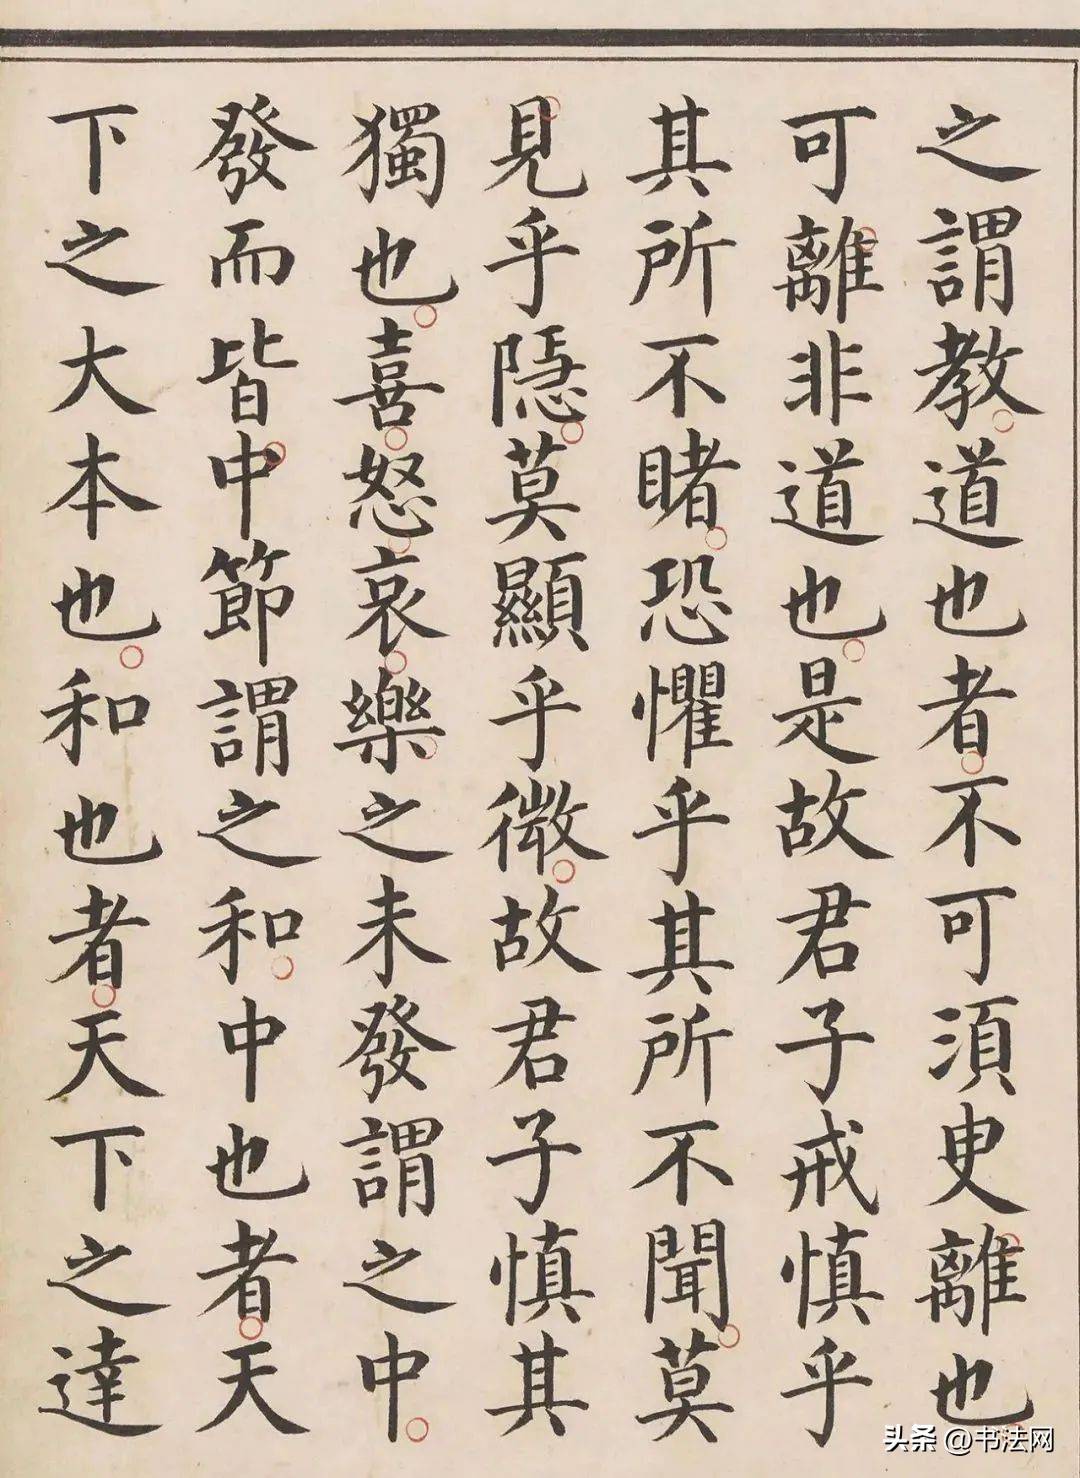 之謂教道也者不可須臾離也
可離非道也是故君子戒慎乎
其所不睹恐懼乎其所不聞莫
見乎隱莫顯乎微故君子慎其
獨也喜怒哀樂之未發謂之中
發而皆中節謂之和中也者天
下之大本也和也者天下之達
头条 @书法网